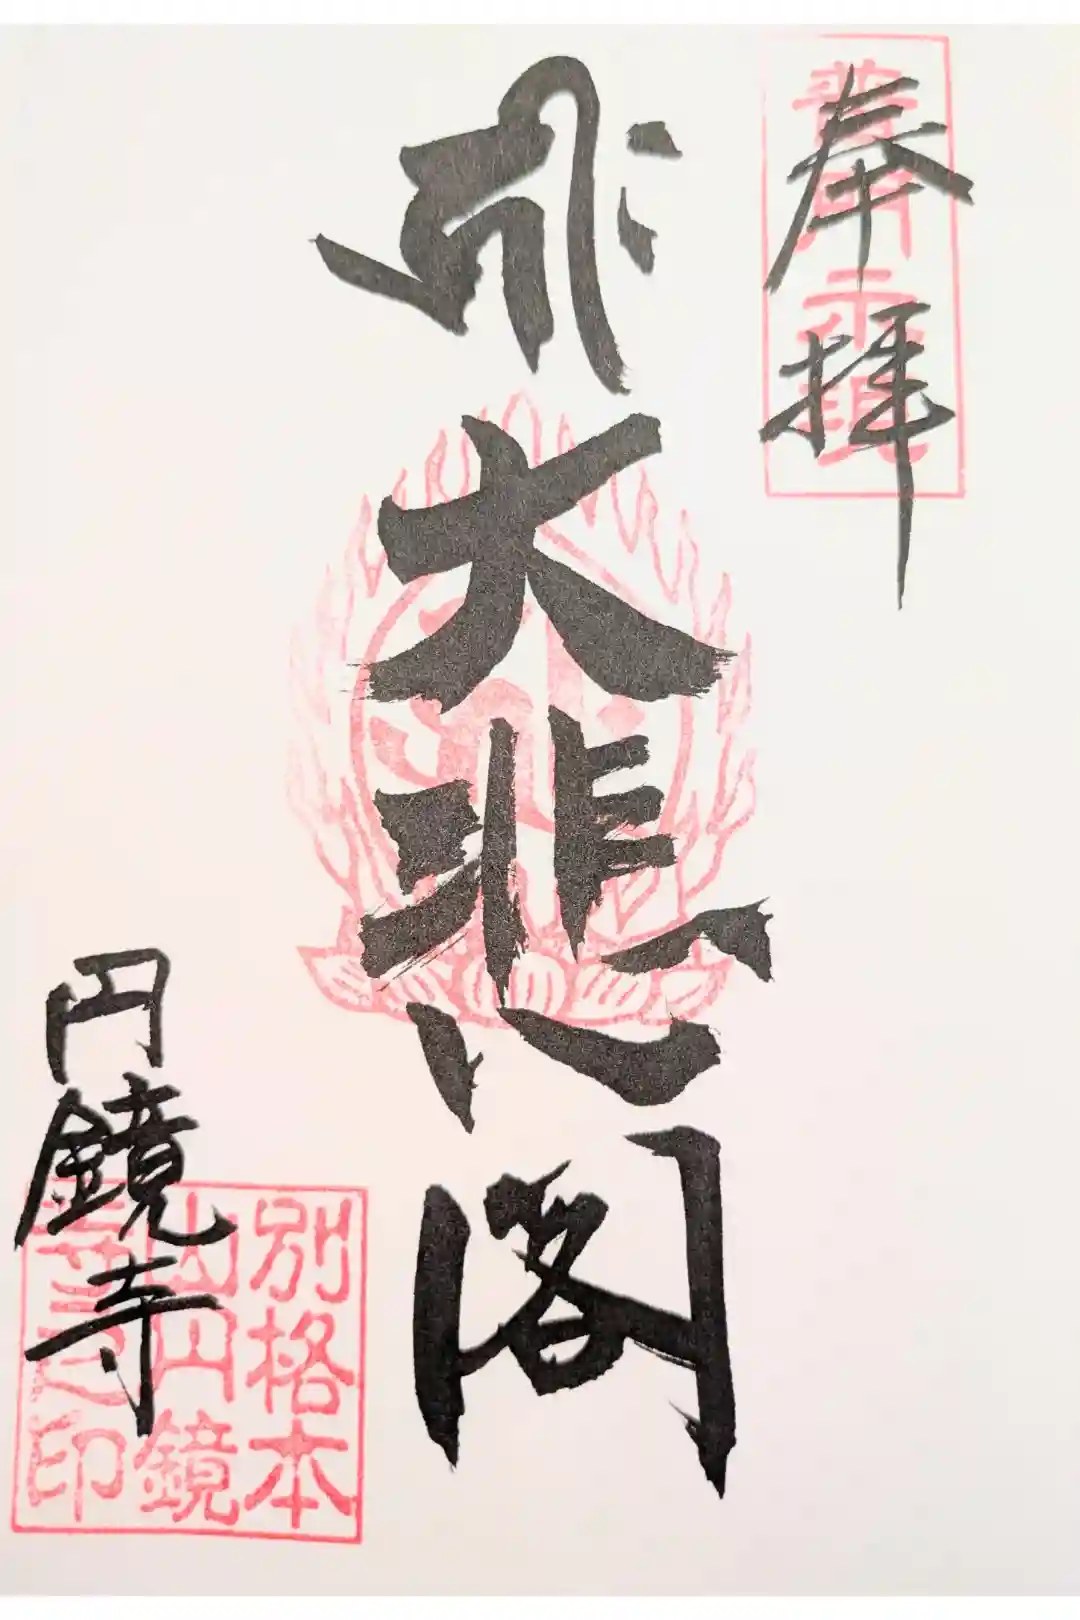 奉拝
普門示現
大悲閣
円鏡寺
別格本
山円鏡
寺之印